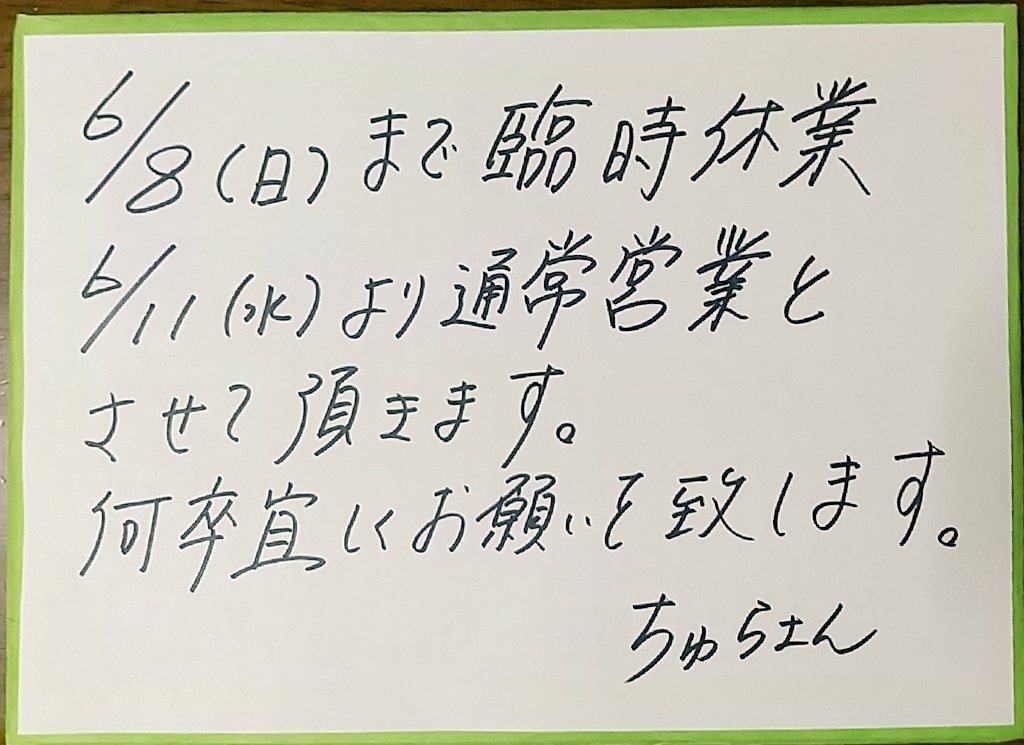 6/8(日)まで臨時休業
6/11(水)より通常営業と
させて頂きます。
何卒宜しくお願いを致します。
ちゅらさん